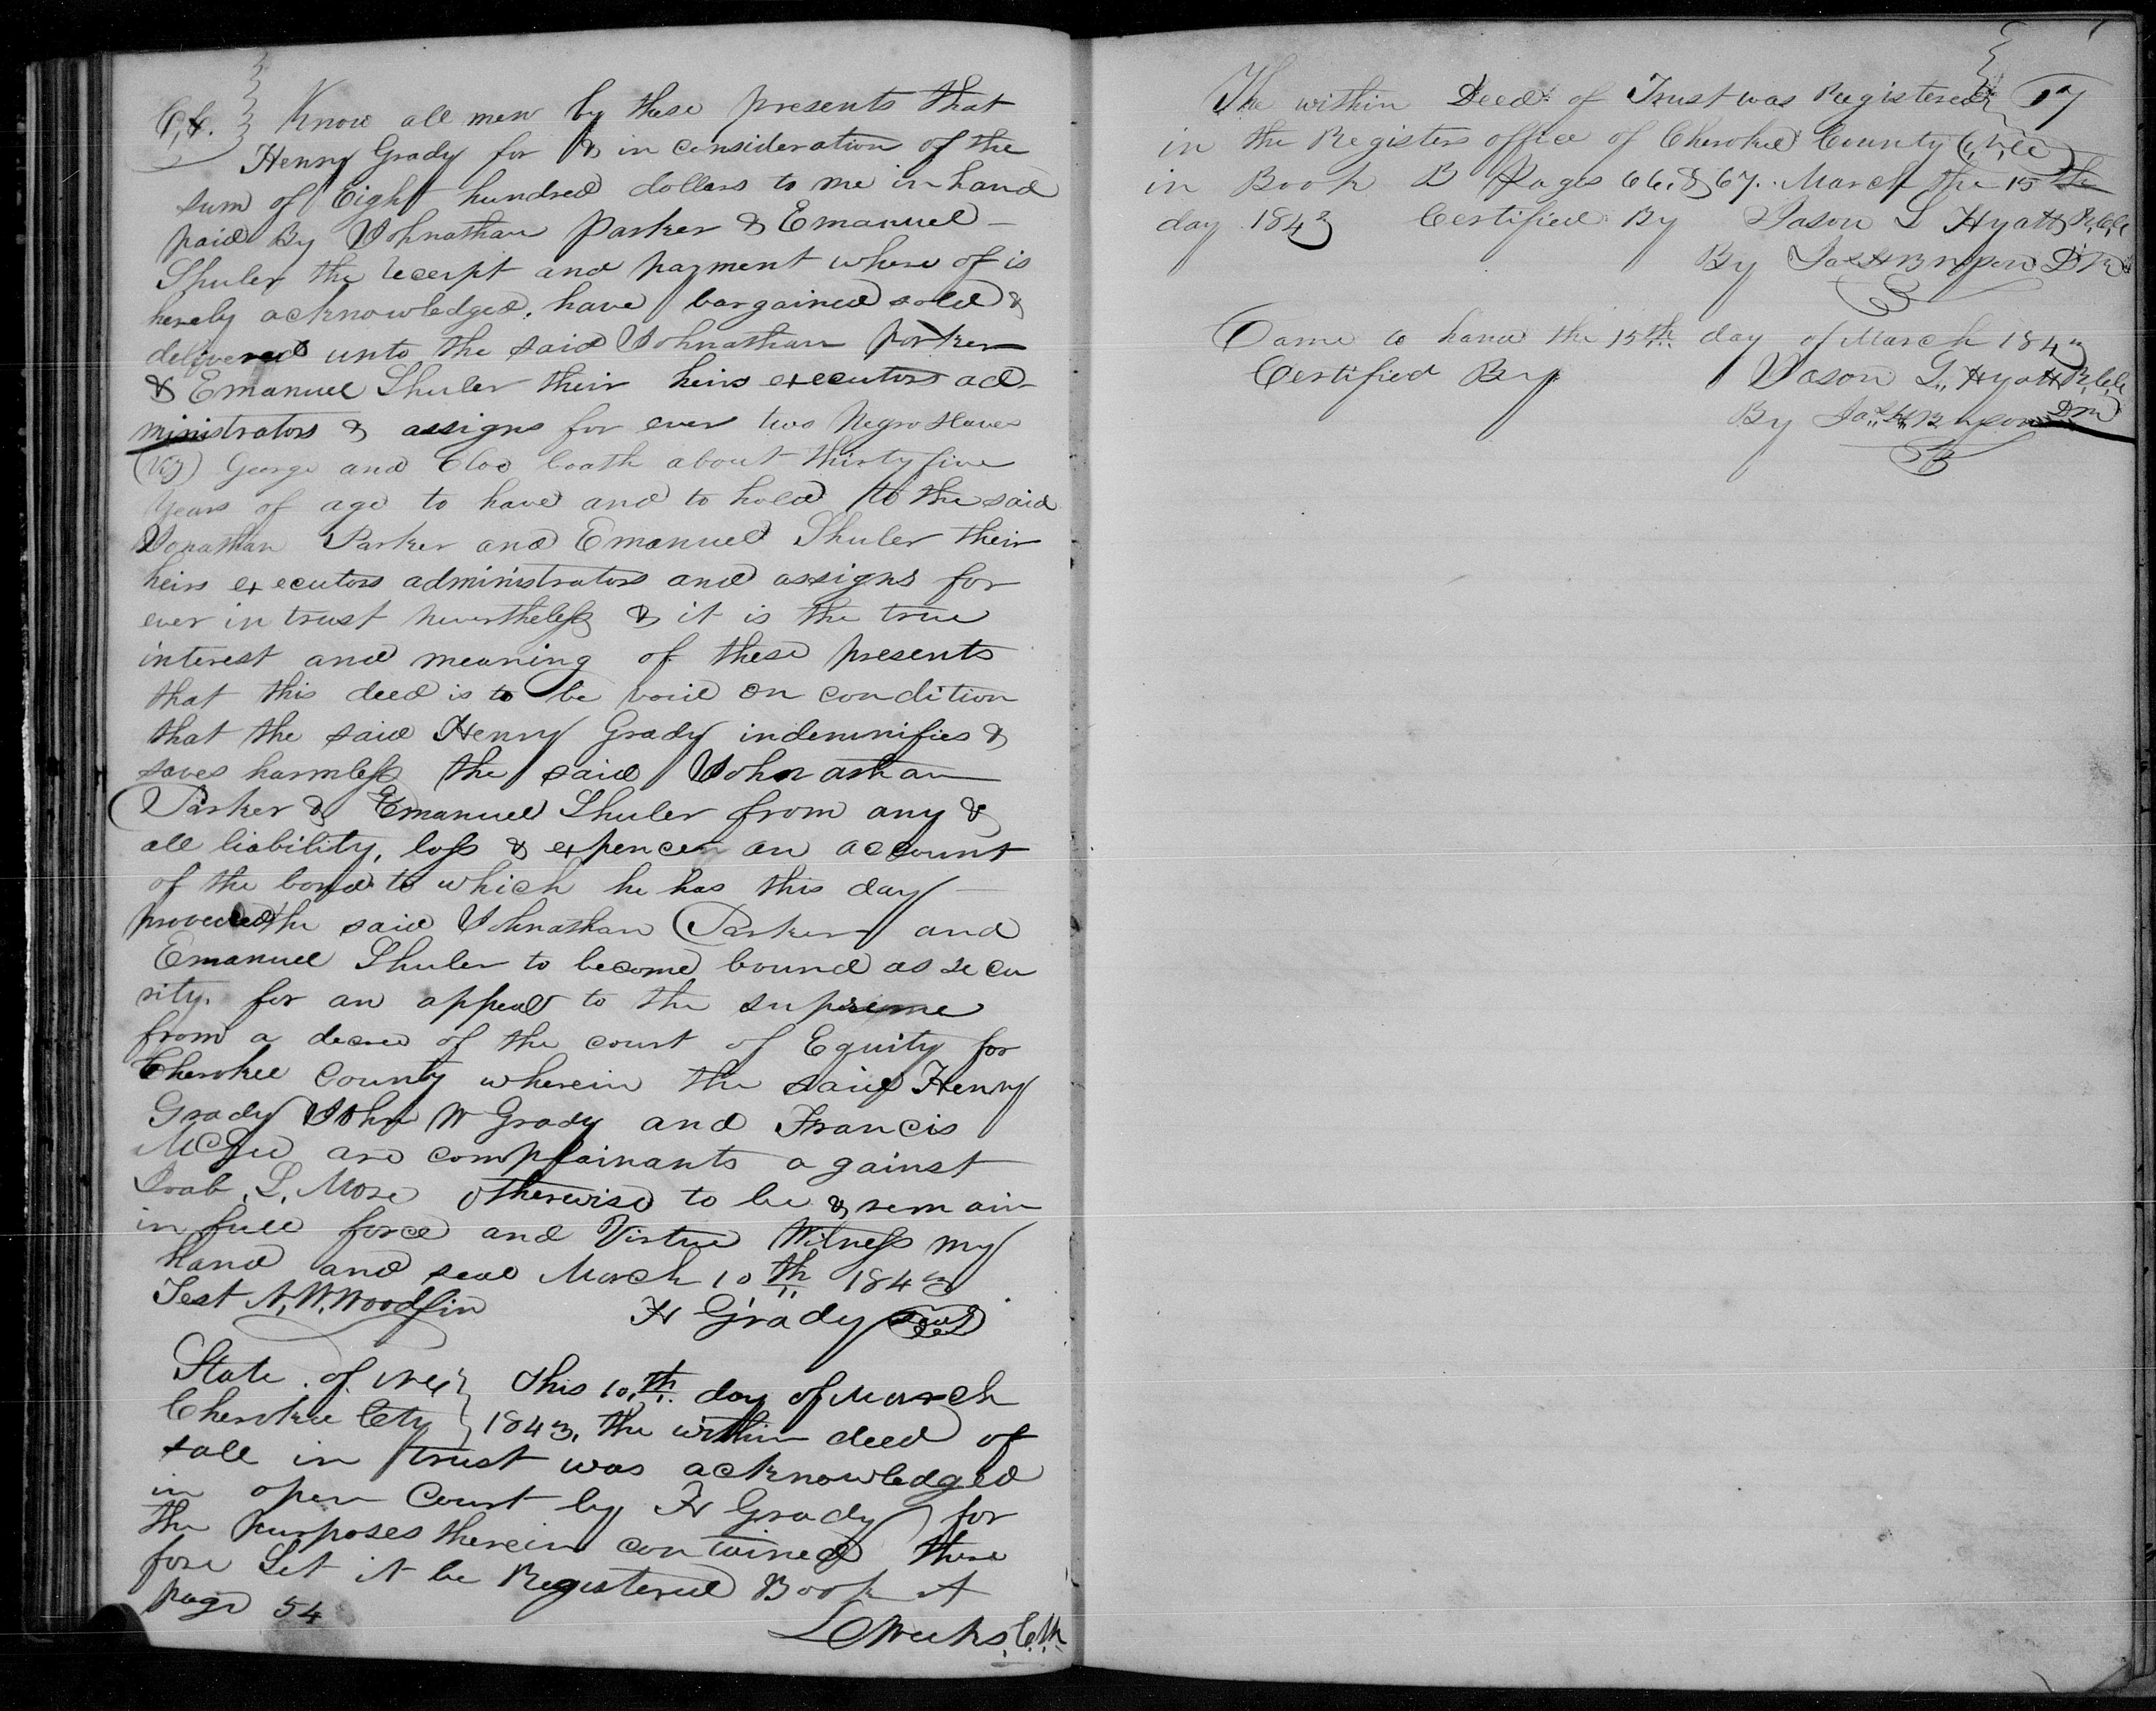 C,C. Know all men by these presents that
Henry Grady for & in consideration of the
sum of Eight hundred dollars to me in hand
paid By Johnathan Parker & Emanuel
Shuler the receipt and payment where of is
hereby acknowledged, have bargained sold &
delivered unto the said Johnathan parker
& Emanuel Shuler their heirs executors ad-
ministrators & assigns for ever two Negro slaves
(Viz) George and Cloo boath about thirty five
years of age to have and to hold to the said
Jonathan Parker and Emanuel Shuler their
heirs executors administrators and assigns for
ever in trust nevertheless & it is the true
interest and meaning of these presents
that this deed is to be void on condition
that the said Henry Grady indemnifies &
saves harmless the said Johnathan
Parker & Emanuel Shuler from any &
all liability, loss & expences an account
of the bond to which he has this day
the said Johnathan Parker and
Emanuel Shuler to become bound as secu
rity. for an appeal to the supreme
from a decree of the court of Equity for
Cherokee County wherein the said Henry
Grady John W Grady and Francis
McGee are complainants against
Joab. L. More otherwise to be & remain
in full force and Virtue Witness my
hand and seal March 10th 1843
Test N. W. Woodfin H Grady Seal
State of NC } This 10th day of March
Cherokee Cty } 1843, the within deed of
sale in trust was acknowledged
in open Court by H Grady for
the purposes therein contained there
fore Let it be Registered Book A
page 54
Weeks, Clk
The within Deed of Trust was Registered 57
in the Registers office of Cherokee County
in Book B Pages 66. & 67. March the 15th
day 1843 Certified By Jason L Hyatt R,C,C
By D R
Came to hand the 15th day of March 1843
Certified By Jason L. Hyatt R,C,C
By